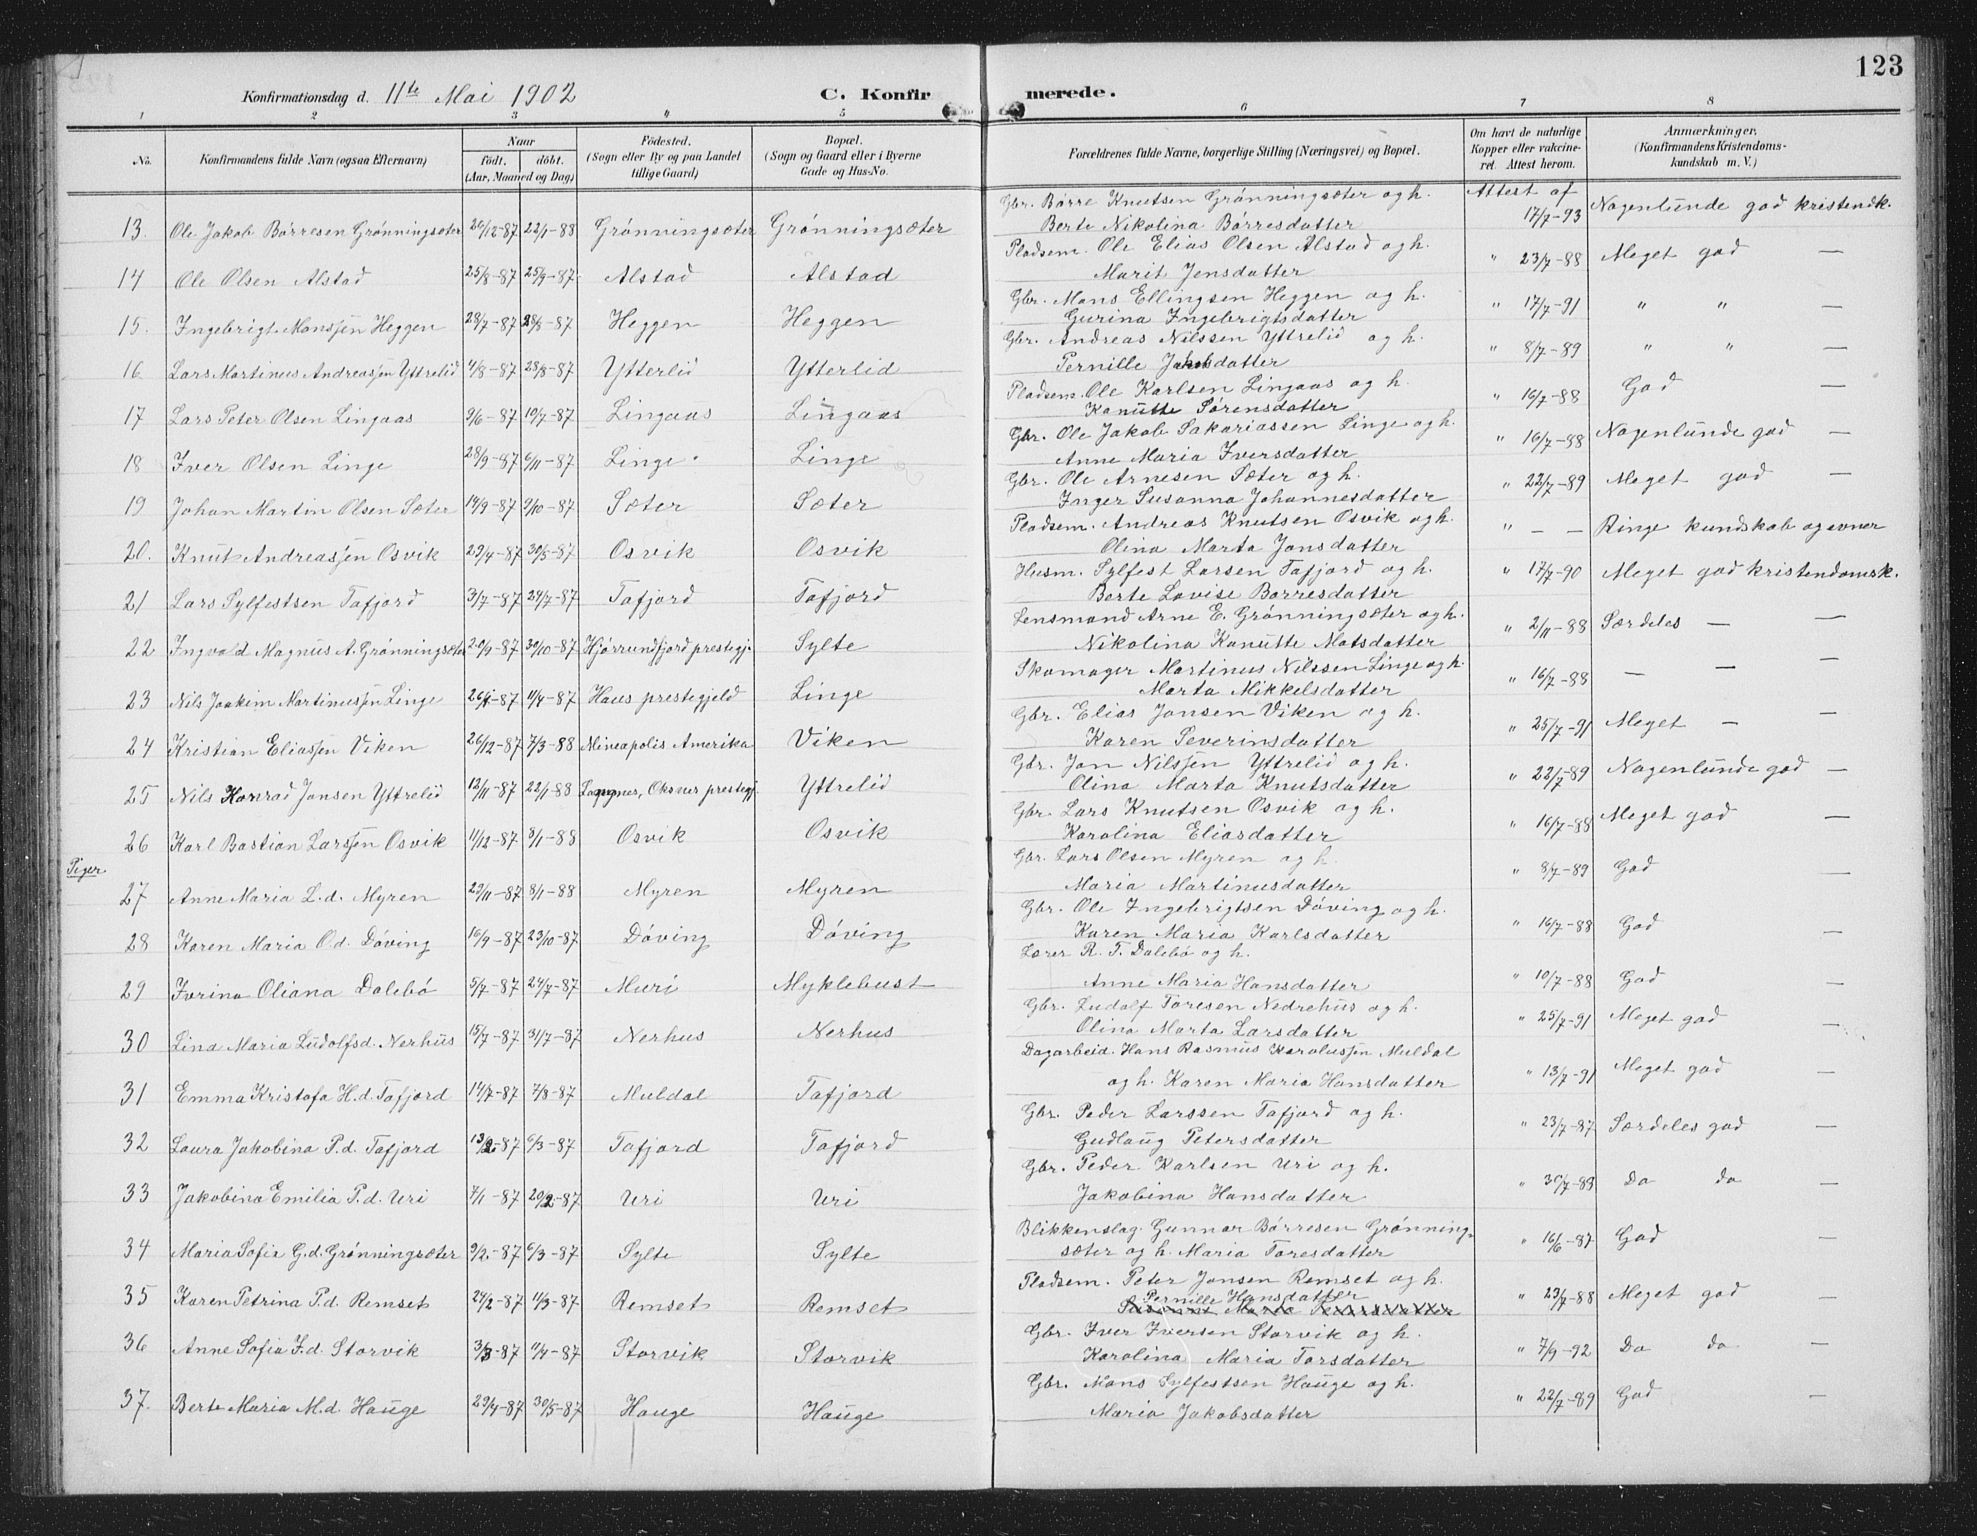 123
Konfirmationsdag d. 11te Mai 1902 C. Konfirmerede.
1 2 3 4 5 6 7 8
No. Konfirmandens fulde Navn (ogsaa Efternavn) Naar født. døbt. (Aar, Maaned og Dag) Fødested. (Sogn eller By og paa Landet tillige Gaard) Bopæl. (Sogn og Gaard eller i Byerne Gade og Hus-No. Forældrenes fulde Navne, borgerlige Stilling (Næringsvei) og Bopæl. Om havt de naturlige Kopper eller vakcineret. Attest herom. Anmærkninger. (Konfirmandens Kristendomskundskab m. V.)
13. Ole Jakob Børresen Grønningsæter 26/12-87 22/1-88 Grønningsæter Grønningsæter Gbr. Børre Knutsen Grønningsæter og h. Attest af 17/7-93 Nogenlunde god kristendk.
Berte Nikolina Børresdatter
14 Ole Olsen Alstad 25/8-87 25/9-87 Alstad Alstad Pladsem. Ole Elias Olsen Alstad og h. " 23/7-88 Meget god —
Marit Jensdatter
15. Ingebrigt Monssen Heggen 28/7-87 28/8-87 Heggen Heggen Gbr. Mons Ellingsen Heggen og h. " 17/7-91 " " —
Gurina Ingebrigtsdatter
16 Lars Martinus Andreassen Yttrelid 4/8-87 28/8-87 Ytterlid Ytterlid Gbr. Andreas Nilssen Yttrelid og h. " 8/7-89 " " —
Pernille Jakobsdatter
17 Lars Peter Olsen Lingaas 9/6-87 10/7-87 Lingaas Lingaas Pladsem. Ole Karlsen Lingaas og h. " 16/7-88 God —
Kanutte Sørensdatter
18 Iver Olsen Linge 28/9-87 6/11-87 Linge Linge Gbr. Ole Jakob Sakariassen Linge og h. " 16/7-88 Nogenlunde god —
Anne Maria Iversdatter
19 Johan Martin Olsen Sæter 14/9-87 9/10-87 Sæter Sæter Gbr. Ole Arnesen Sæter og h. " 22/7-89 Meget god —
Inger Susanna Johannesdatter
20. Knut Andreassen Osvik 29/4-87 30/5-87 Osvik Osvik Pladsem. Andreas Knutsen Osvik og h. " — — Ringe kundskab og evner
Olina Marta Jonsdatter
21 Lars Sylfestsen Tafjord 3/7-87 24/7-87 Tafjord Tafjord Husm. Sylfest Larsen Tafjord og h. " 17/7-90 Meget god kristendomsk.
Berte Lovise Børresdatter
22 Ingvald Magnus A. Grønningsæter 20/9-87 30/10-87 Hjørrundfjord prestegj. Sylte Lensmand Arne E. Grønningsæter og h. " 2/11-88 Særdeles — —
Nikolina Kanutte Matsdatter
23 Nils Joakim Martinussen Linge 26/1-87 11/4-87 Haus prestegjeld Linge Skomager Martinus Nilssen Linge og h. " 16/7-88 — — —
Marta Mikkelsdatter
24 Kristian Eliassen Viken 26/12-87 7/3-88 Mineapolis Amerika Viken Gbr. Elias Jonsen Viken og h. " 25/7-91 Meget —
Karen Severinsdatter
25 Nils Konrad Jonsen Yttrelid 12/11-87 22/1-88 Oksnes prestegj. Yttrelid Gbr. Jon Nilssen Yttrelid og h. " 22/7-89 Nogenlunde god —
Olina Marta Knutsdatter
26 Karl Bastian Larssen Osvik 11/12-87 8/1-88 Osvik Osvik Gbr. Lars Knutsen Osvik og h. " 16/7-88 Meget god —
Karolina Eliasdatter
Piger
27 Anne Maria L.d. Myren 29/11-87 8/1-88 Myren Myren Gbr. Lars Olsen Myren og h. " 8/7-89 God —
Maria Martinusdatter
28 Karen Maria O.d. Døving 16/9-87 23/10-87 Døving Døving Gbr. Ole Ingebrigtsen Døving og h. " 16/7-88 God —
Karen Maria Karlsdatter
29 Iverina Oliana Dalebø 5/7-87 24/7-87 Muri Myklebust Lærer R. T. Dalebø og h. " 10/7-88 God —
Anne Maria Hansdatter
30 Lina Maria Ludolfsd. Nerhus 15/7-87 31/7-87 Nerhus Nerhus Gbr. Ludolf Toresen Nedrehus og h. " 25/7-91 Meget god —
Olina Marta Larsdatter
31 Emma Kristofa H.d. Tafjord 14/7-87 7/8-87 Muldal Tafjord Dagarbeid. Hans Rasmus Karolussen Muldal " 13/7-91 Meget god —
og h. Karen Maria Hansdatter
32 Laura Jakobina P.d. Tafjord 13/2-87 6/3-87 Tafjord Tafjord Gbr. Peder Larssen Tafjord og h. " 23/7-87 Særdeles god —
Gudlaug Petersdatter
33 Jakobina Emilia P.d. Uri 7/1-87 20/2-87 Uri Uri Gbr. Peder Karlsen Uri og h. " 30/7-89 Do do —
Jakobina Hansdatter
34 Maria Sofie G.d. Grønningsæter 9/2-87 6/3-87 Sylte Sylte Blikkenslag. Gunnar Børresen Grønning- " 16/6-87 God —
sæter og h. Maria Toresdatter
35 Karen Petrina P.d. Remset 24/2-87 11/3-87 Remset Remset Pladsem. Peter Jonsen Remset og h. " 23/7-88 Meget god —
Pernille Hansdatter
36 Anne Sofia I.d. Storvik 3/3-87 11/4-87 Storvik Storvik Gbr. Iver Iversen Storvik og h. " 7/9-92 Do do —
Karolina Maria Torsdatter
37. Berte Maria M.d. Hauge 29/4-87 30/5-87 Hauge Hauge Gbr. Mons Sylfestsen Hauge og h. " 22/7-89 God —
Maria Jakobsdatter